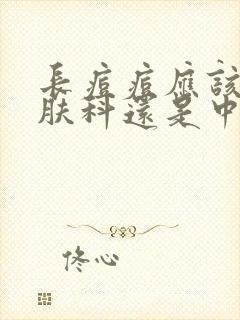 長痘痘應該
膚科還是中
佟心